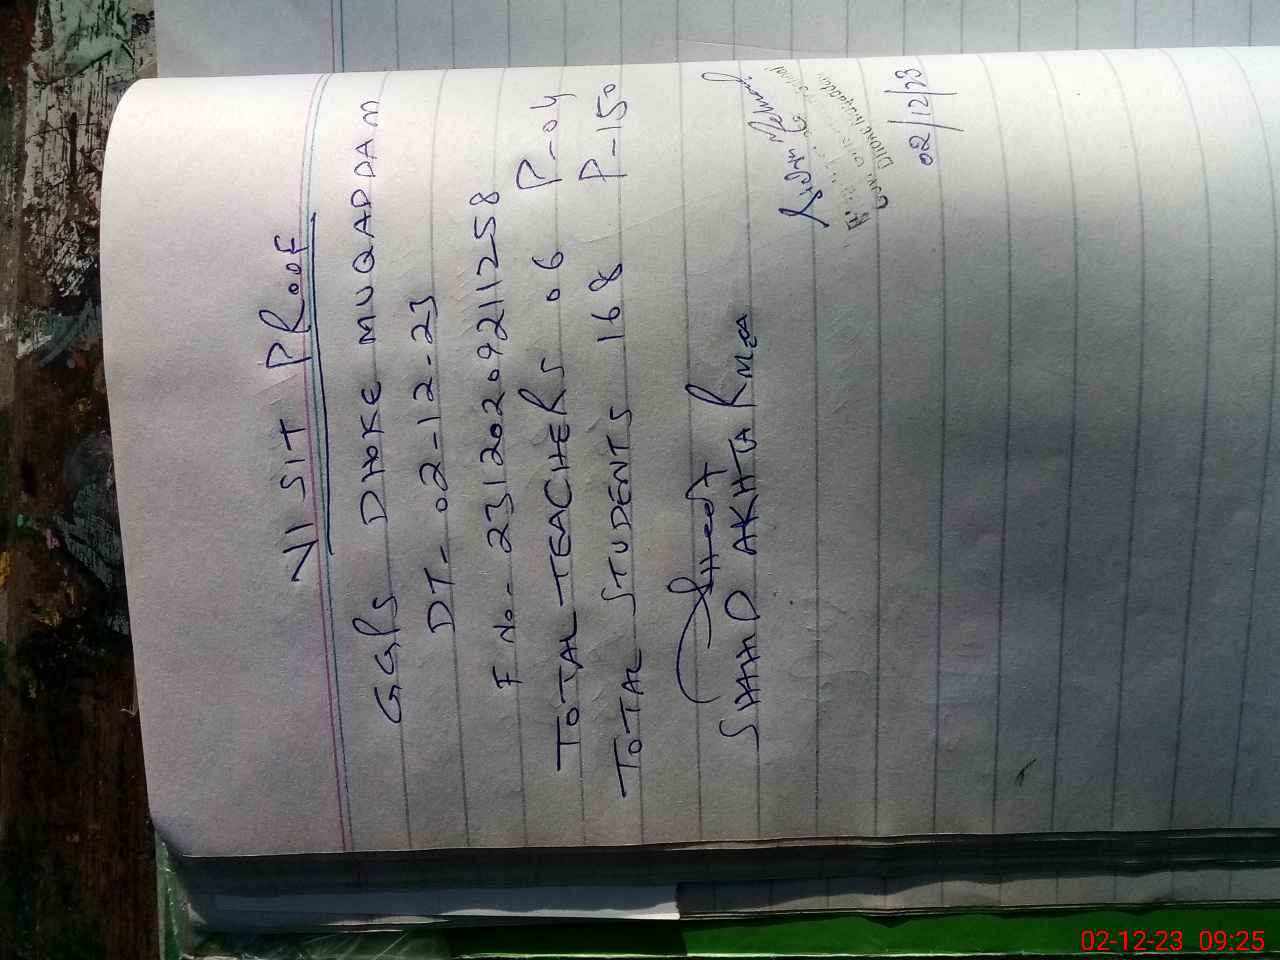 VISIT PROOF
GGPS DHOKE MUQADDAM
DT- 02-12-23
F No- 23120209211258
TOTAL TEACHERS 06 P-04
TOTAL STUDENTS 168 P-150
SHAHID AKHTAR MEA
DHOKE
02/12/23
02-12-23 09:25